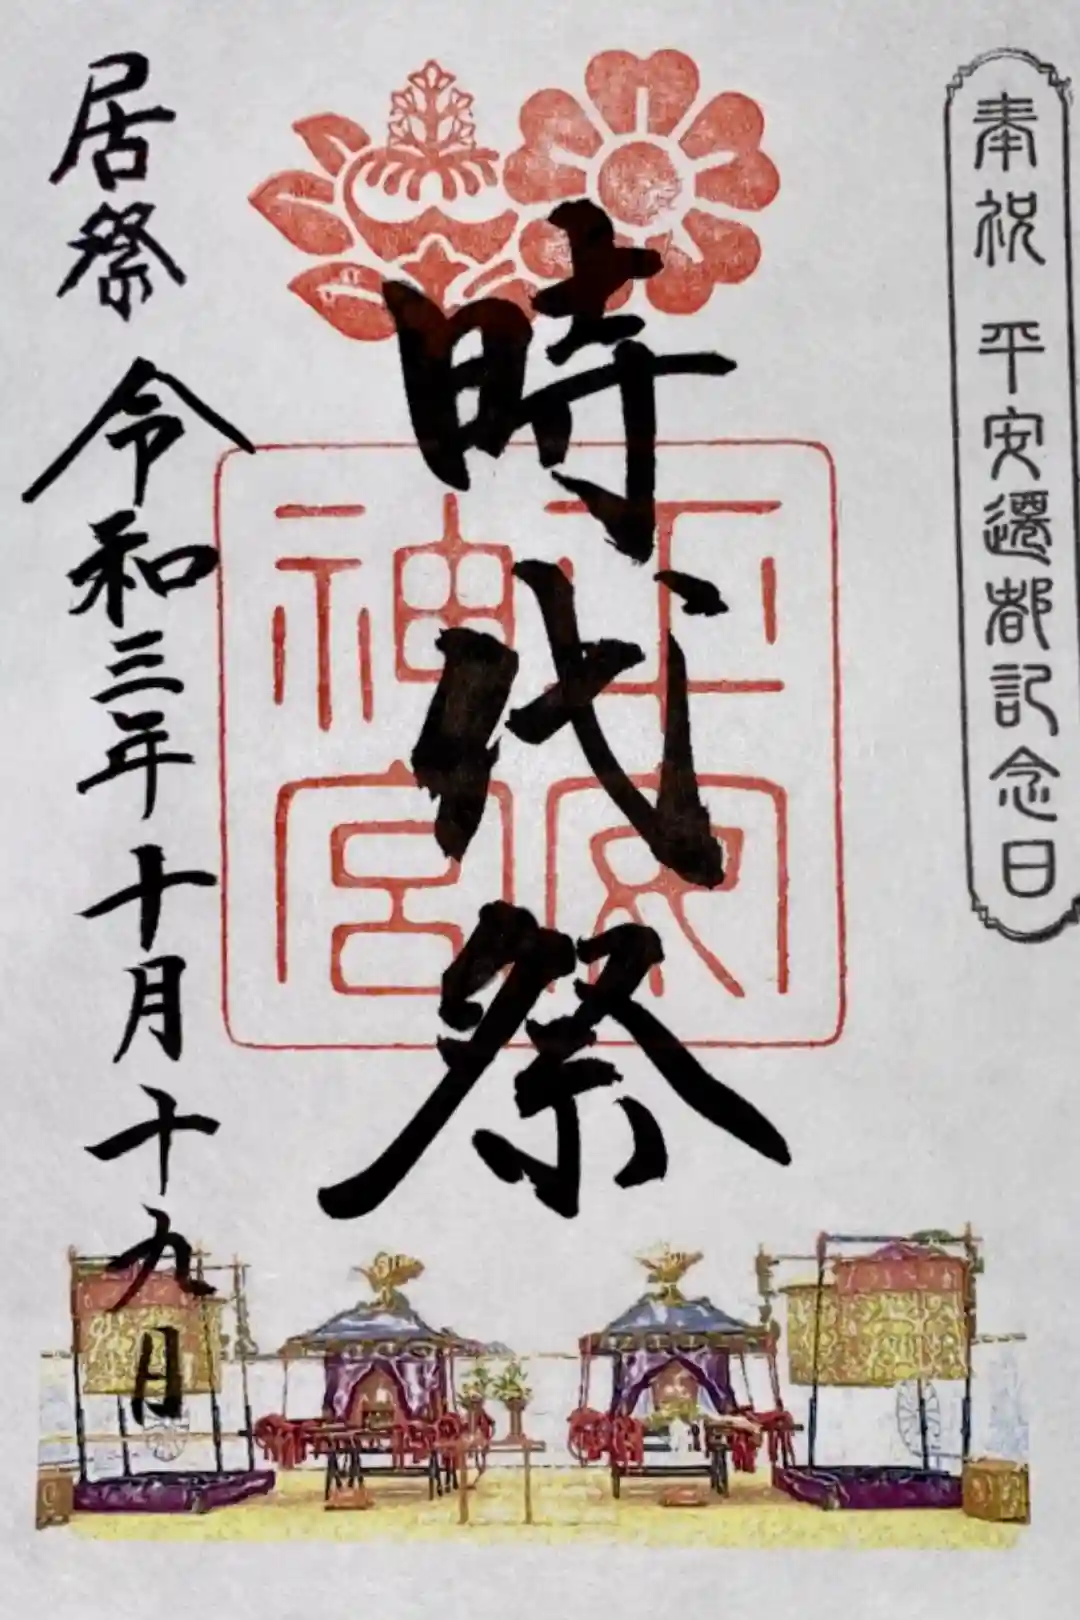 奉祝 平安遷都記念日
時代祭
平安
神宮
居祭 令和三年十月十九日